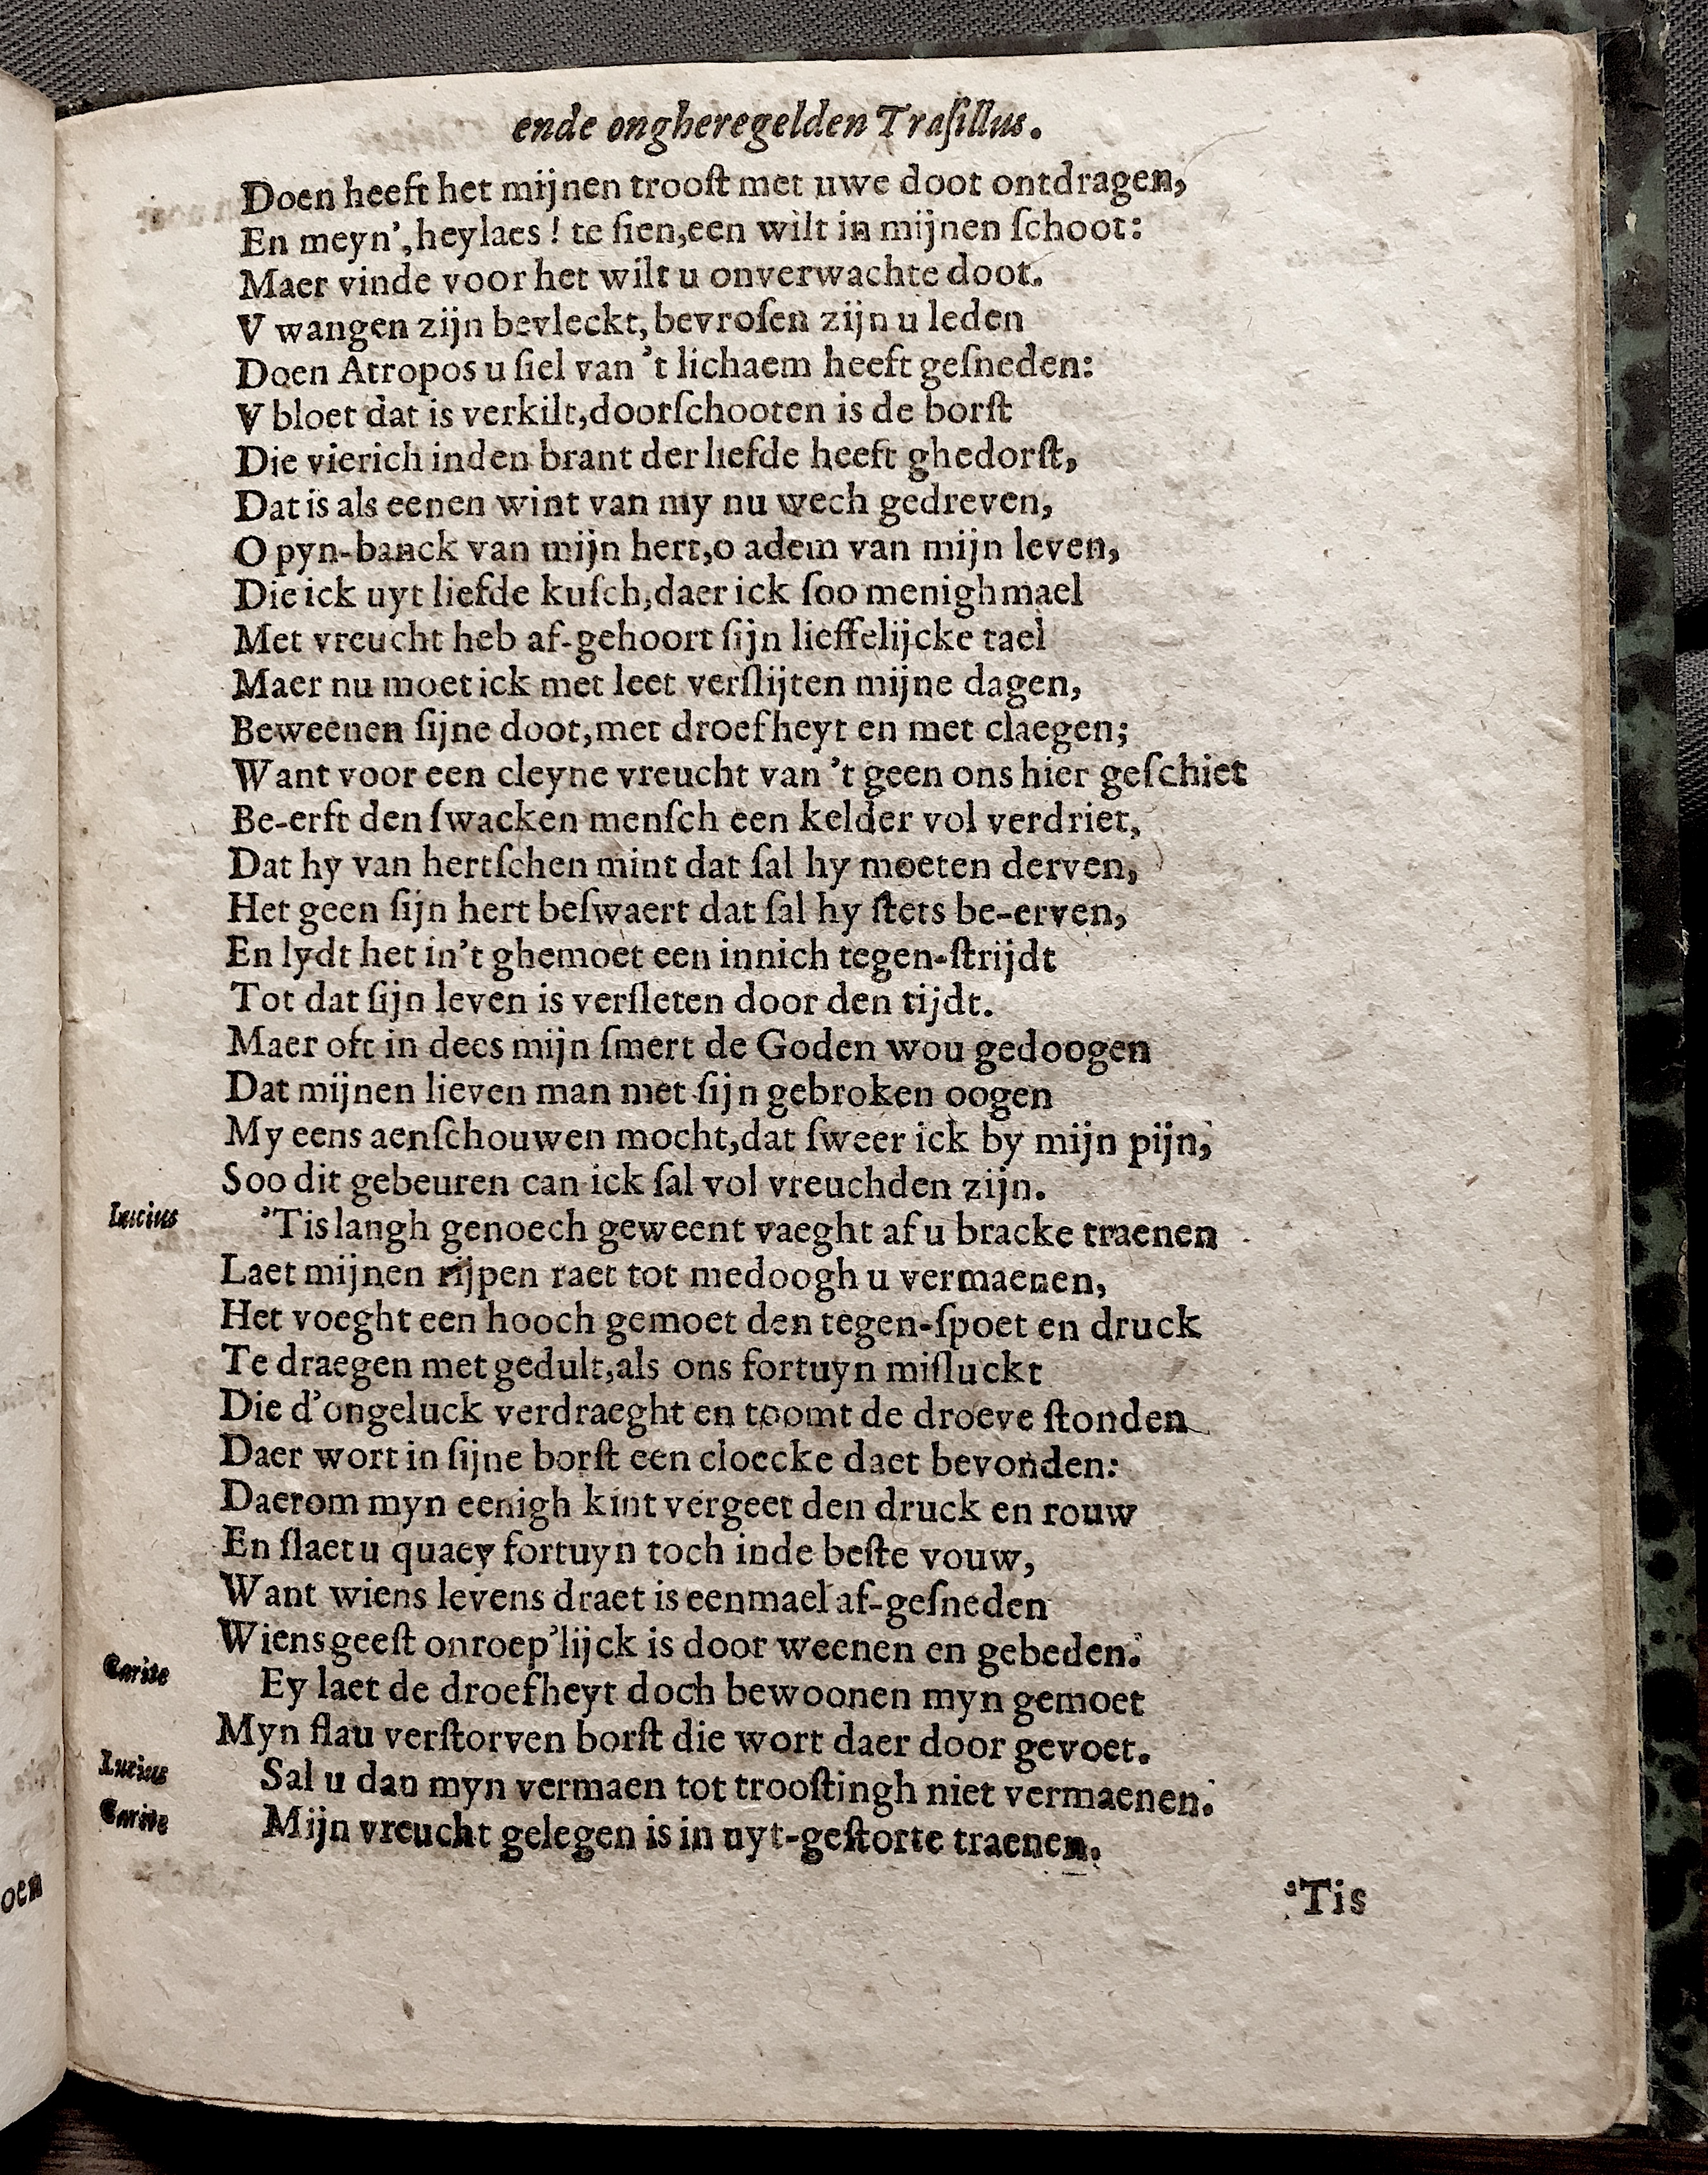 ende ongheregelden Traſillus.
Doen heeft het mijnen trooſt met uwe doot ontdragen,
En meyn', heylaes! te ſien, een wilt in mijnen ſchoot:
Maer vinde voor het wilt u onverwachte doot.
V wangen zijn bevleckt, bevroſen zijn u leden
Doen Atropos u ſiel van 't lichaem heeft geſneden:
V bloet dat is verkilt, doorſchooten is de borſt
Die vierich inden brant der liefde heeft ghedorſt,
Dat is als eenen wint van my nu wech gedreven,
O pyn-banck van mijn hert, o adem van mijn leven,
Die ick uyt liefde kuſch, daer ick ſoo menighmael
Met vreucht heb af-gehoort ſijn lieffelijcke tael
Maer nu moet ick met leet verſlijten mijne dagen,
Beweenen ſijne doot, met droefheyt en met claegen;
Want voor een cleyne vreucht van 't geen ons hier geſchiet
Be-erft den ſwacken menſch een kelder vol verdriet,
Dat hy van hertſchen mint dat ſal hy moeten derven,
Het geen ſijn hert beſwaert dat ſal hy ſtets be-erven,
En lydt het in't ghemoet een innich tegen-ſtrijdt
Tot dat ſijn leven is verſleten door den tijdt.
Maer oft in dees mijn ſmert de Goden wou gedoogen
Dat mijnen lieven man met ſijn gebroken oogen
My eens aenſchouwen mocht, dat ſweer ick by mijn pijn,
Soo dit gebeuren can ick ſal vol vreuchden zijn.
Lucius 'Tis langh genoech geweent vaeght af u bracke traenen
Laet mijnen rijpen raet tot medoogh u vermaenen,
Het voeght een hooch gemoet den tegen-ſpoet en druck
Te draegen met gedult, als ons fortuyn miſluckt
Die d'ongeluck verdraeght en toomt de droeve ſtonden
Daer wort in ſijne borſt een cloecke daet bevonden:
Daerom myn eenigh kint vergeet den druck en rouw
En ſlaet u quaey fortuyn toch inde beſte vouw,
Want wiens levens draet is eenmael af-geſneden
Wiens geeſt onroep'lijck is door weenen en gebeden.
Carite Ey laet de droefheyt doch bewoonen myn gemoet
Myn flau verſtorven borſt die wort daer door gevoet.
Lucius Sal u dan myn vermaen tot trooſtingh niet vermaenen.
Carite Mijn vreucht gelegen is in uyt-geſtorte traenen.
oen
'Tis